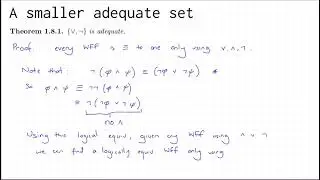 A smaller adequate set
Theorem 1.8.1. {∨, ¬} is adequate.
Proof. every WFF is ≡ to one only using ∨, ∧, ¬.
Note that ¬(φ ∧ ψ) ≡ (¬φ ∨ ¬ψ)
So φ ∧ ψ ≡ ¬¬(φ ∧ ψ)
≡ ¬(¬φ ∨ ¬ψ)
no ∧
Using this logical equiv, given any WFF using ∧ ∨ ¬
we can find a logically equiv WFF only using